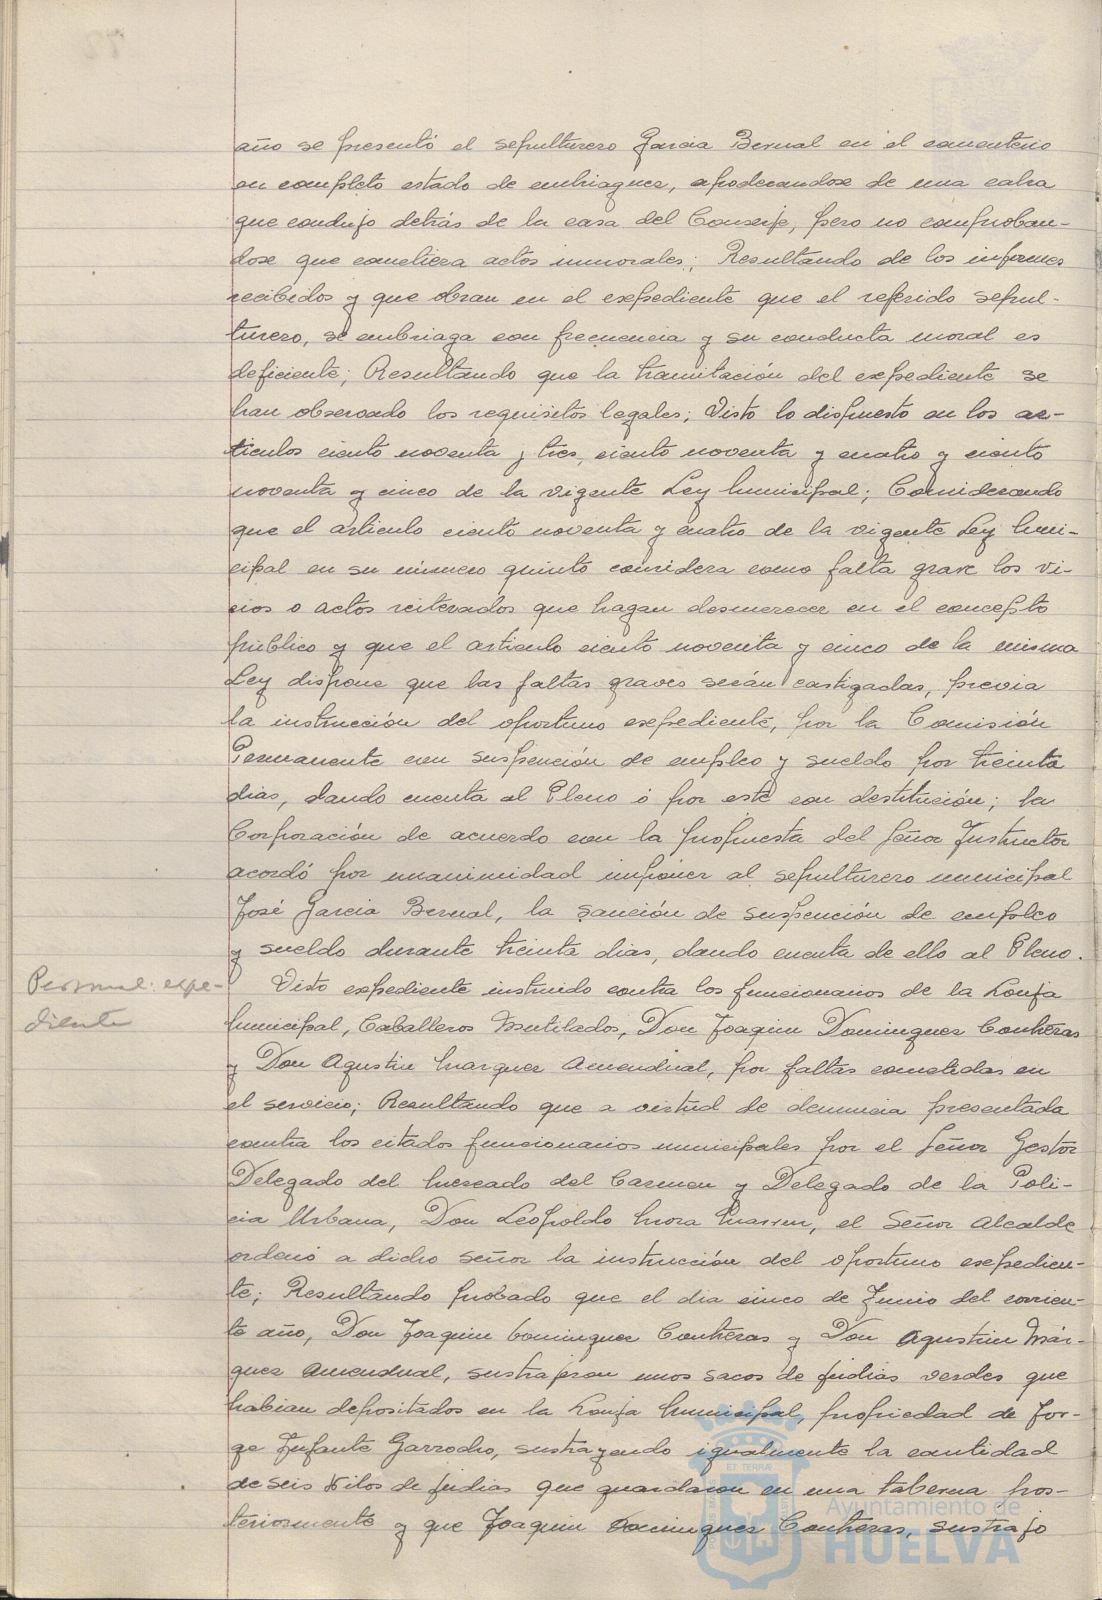 año se presentó el sepulturero Garcia Bernal en el cementerio
en completo estado de embriaguez, apoderandose de una cabra
que condujo detrás de la casa del Conserje, pero no comproban-
dose que cometiera actos inmorales; Resultando de los informes
recibidos y que obran en el expediente que el referido sepul-
turero, se embriaga con frecuencia y su conducta moral es
deficiente; Resultando que la tramitación del expediente se
han observado los requisitos legales; Visto lo dispuesto en los ar-
tículos ciento noventa y tres, ciento noventa y cuatro y ciento
noventa y cinco de la vigente Ley Municipal; Considerando
que el articulo ciento noventa y cuatro de la vigente Ley Muni-
cipal en su número quinto considera como falta grave los vi-
cios o actos reiterados que hagan desmerecer en el concepto
público y que el articulo ciento noventa y cinco de la misma
Ley dispone que las faltas graves serán castigadas, previa
la instrucción del oportuno expediente, por la Comisión
Permanente con suspención de empleo y sueldo por treinta
dias, dando cuenta al Pleno ó por este con destitución; la
Corporación de acuerdo con la propuesta del Señor Instructor
acordó por unanimidad imponer al sepulturero municipal
José Garcia Bernal, la sanción de suspención de empleo
y sueldo durante treinta dias, dando cuenta de ello al Pleno.
Personal: expe-
diente
Visto expediente instruido contra los funcionarios de la Lonja
Municipal, Caballeros Mutilados, Don Joaquin Dominguez Contreras
y Don Agustin Marquez Amendual, por faltas cometidas en
el servicio; Resultando que a virtud de denuncia presentada
contra los citados funcionarios municipales por el Señor Gestor
Delegado del Mercado del Carmen y Delegado de la Poli-
cia Urbana, Don Leopoldo Mora, el Señor Alcalde
ordenó a dicho señor la instrucción del oportuno expedien-
te; Resultando probado que el dia cinco de Junio del corrien-
te año, Don Joaquin Dominguez Contreras y Don Agustin Már-
quez Amendual, sustrajeron unos sacos de judias verdes que
habian depositados en la Lonja Municipal, propiedad de Jor-
ge Infante Garrocho, sustrayendo igualmente la cantidad
de seis kilos de judias que guardaron en una taberna pos-
teriormente y que Joaquin Dominguez Contreras, sustrajo
ET TERRAE
Ayuntamiento de
HUELVA